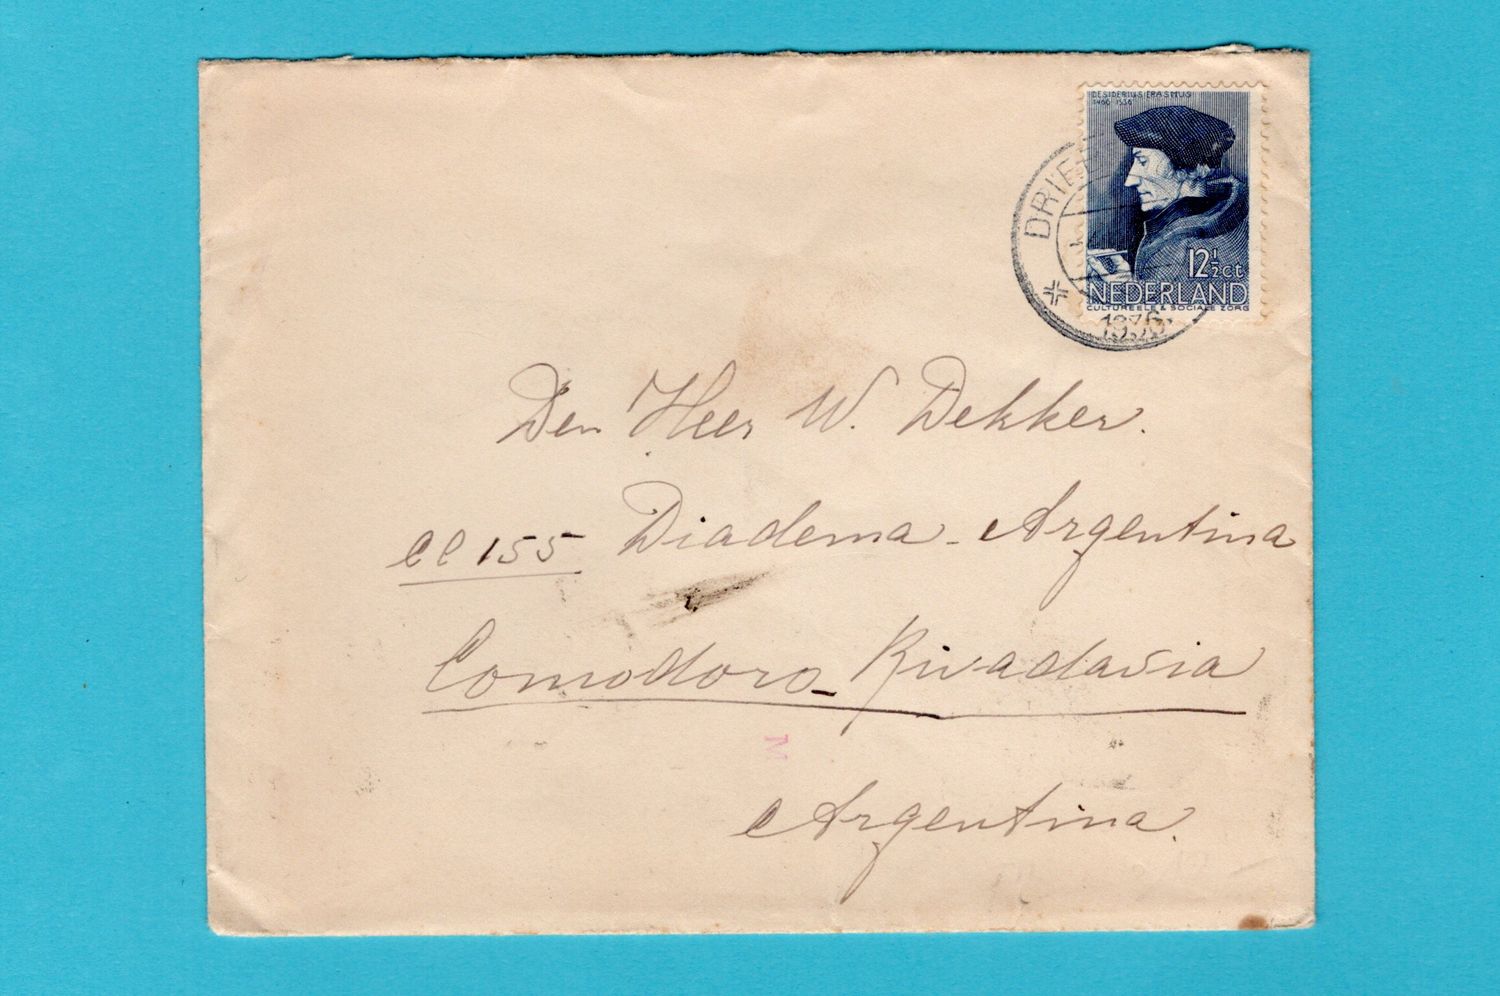 DESIDERIUS ERASMUS
1466 1536
12½ct
NEDERLAND
CULTUREELE & SOCIALE ZORG
1936
Den Heer W. Dekker.
CC 155 Diadema - Argentina
Comodoro - Rivadavia
M
Argentina.